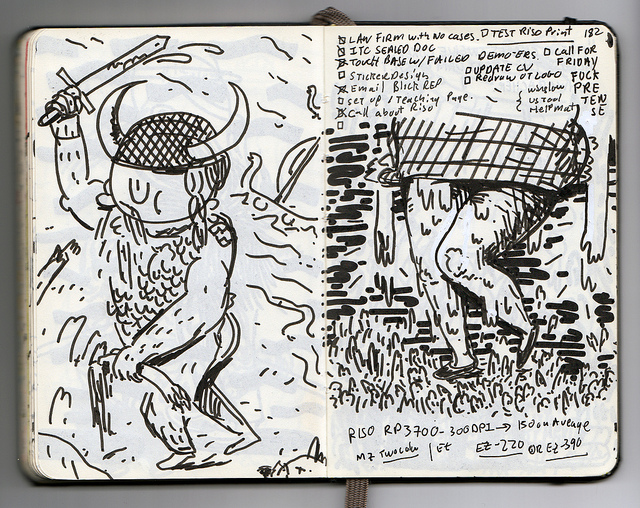 LAW FIRM with No cases. TEST Riso Print 182
ITC SEALED DOC
Touch BASE w/ FAILED DEMO-ERS Call FOR
Sticker Design UPDATE CV FRIDAY
Email Blick REP Redraw OT LOGO FUCK
set up / Teaching Page. PRE
Call about Riso TEN
Helpmat SE
RISO RP3700-300DPI → 150 on Average
MZ Two color | EZ EZ-220 OR EZ-390